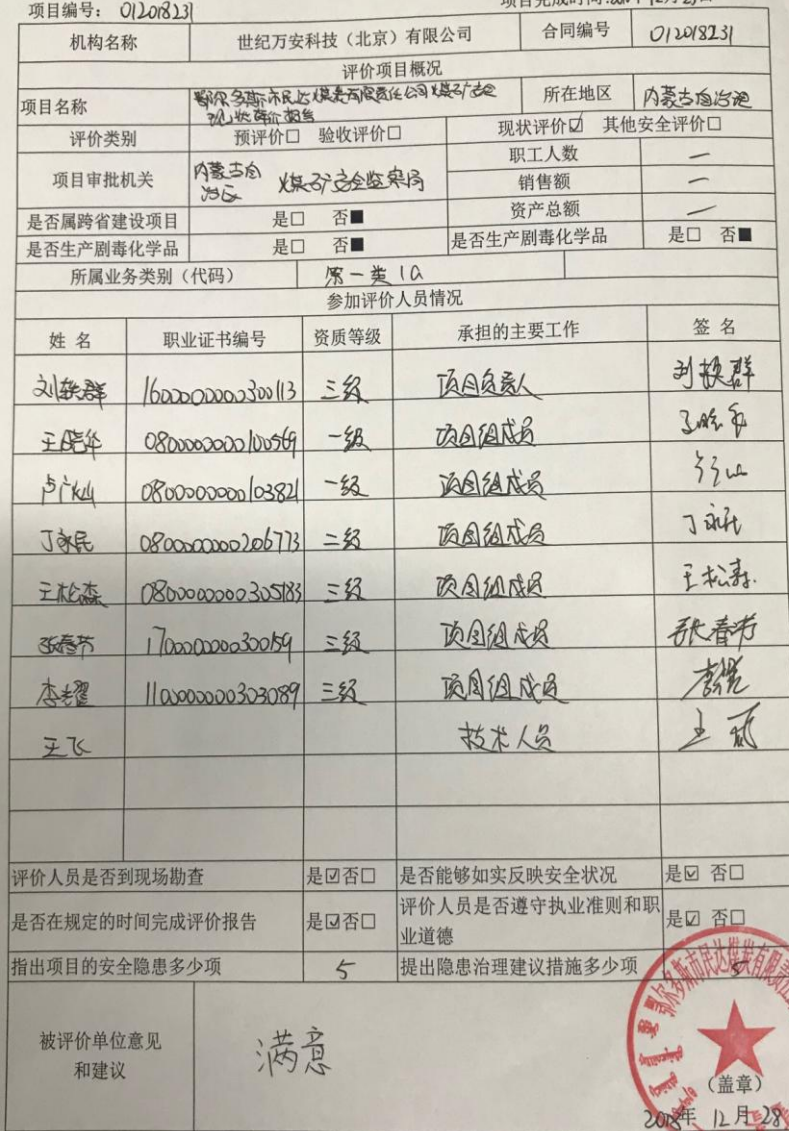 项目编号: 012018231
机构名称 世纪万安科技（北京）有限公司 合同编号 012018231
评价项目概况
项目名称 鄂尔多斯市民达煤炭有限责任公司煤矿安全现状评价报告 所在地区 内蒙古自治区
评价类别 预评价□ 验收评价□ 现状评价☑ 其他安全评价□
项目审批机关 内蒙古自治区 煤矿安全监察局 职工人数 —
销售额 —
资产总额 —
是否属跨省建设项目 是□ 否■
是否生产剧毒化学品 是□ 否■ 是否生产剧毒化学品 是□ 否■
所属业务类别（代码） 第一类1a
参加评价人员情况
姓 名 职业证书编号 资质等级 承担的主要工作 签 名
刘轶群 1600000000300113 三级 项目负责人 刘轶群
王晓华 0800000000100569 一级 项目组成员
卢广山 0800000000103821 一级 项目组成员
丁永民 0800000000206773 二级 项目组成员 丁永民
王松森 0800000000305183 三级 项目组成员 王松森
张春节 1700000000300159 三级 项目组成员 张春节
李光耀 1100000000303089 三级 项目组成员
王飞 技术人员 王飞
评价人员是否到现场勘查 是☑否□ 是否能够如实反映安全状况 是☑ 否□
是否在规定的时间完成评价报告 是☑否□ 评价人员是否遵守执业准则和职业道德 是☑ 否□
指出项目的安全隐患多少项 5 提出隐患治理建议措施多少项 5
被评价单位意见
和建议
满意
鄂尔多斯市民达煤炭有限责任
（盖章）
2018年 12月 28